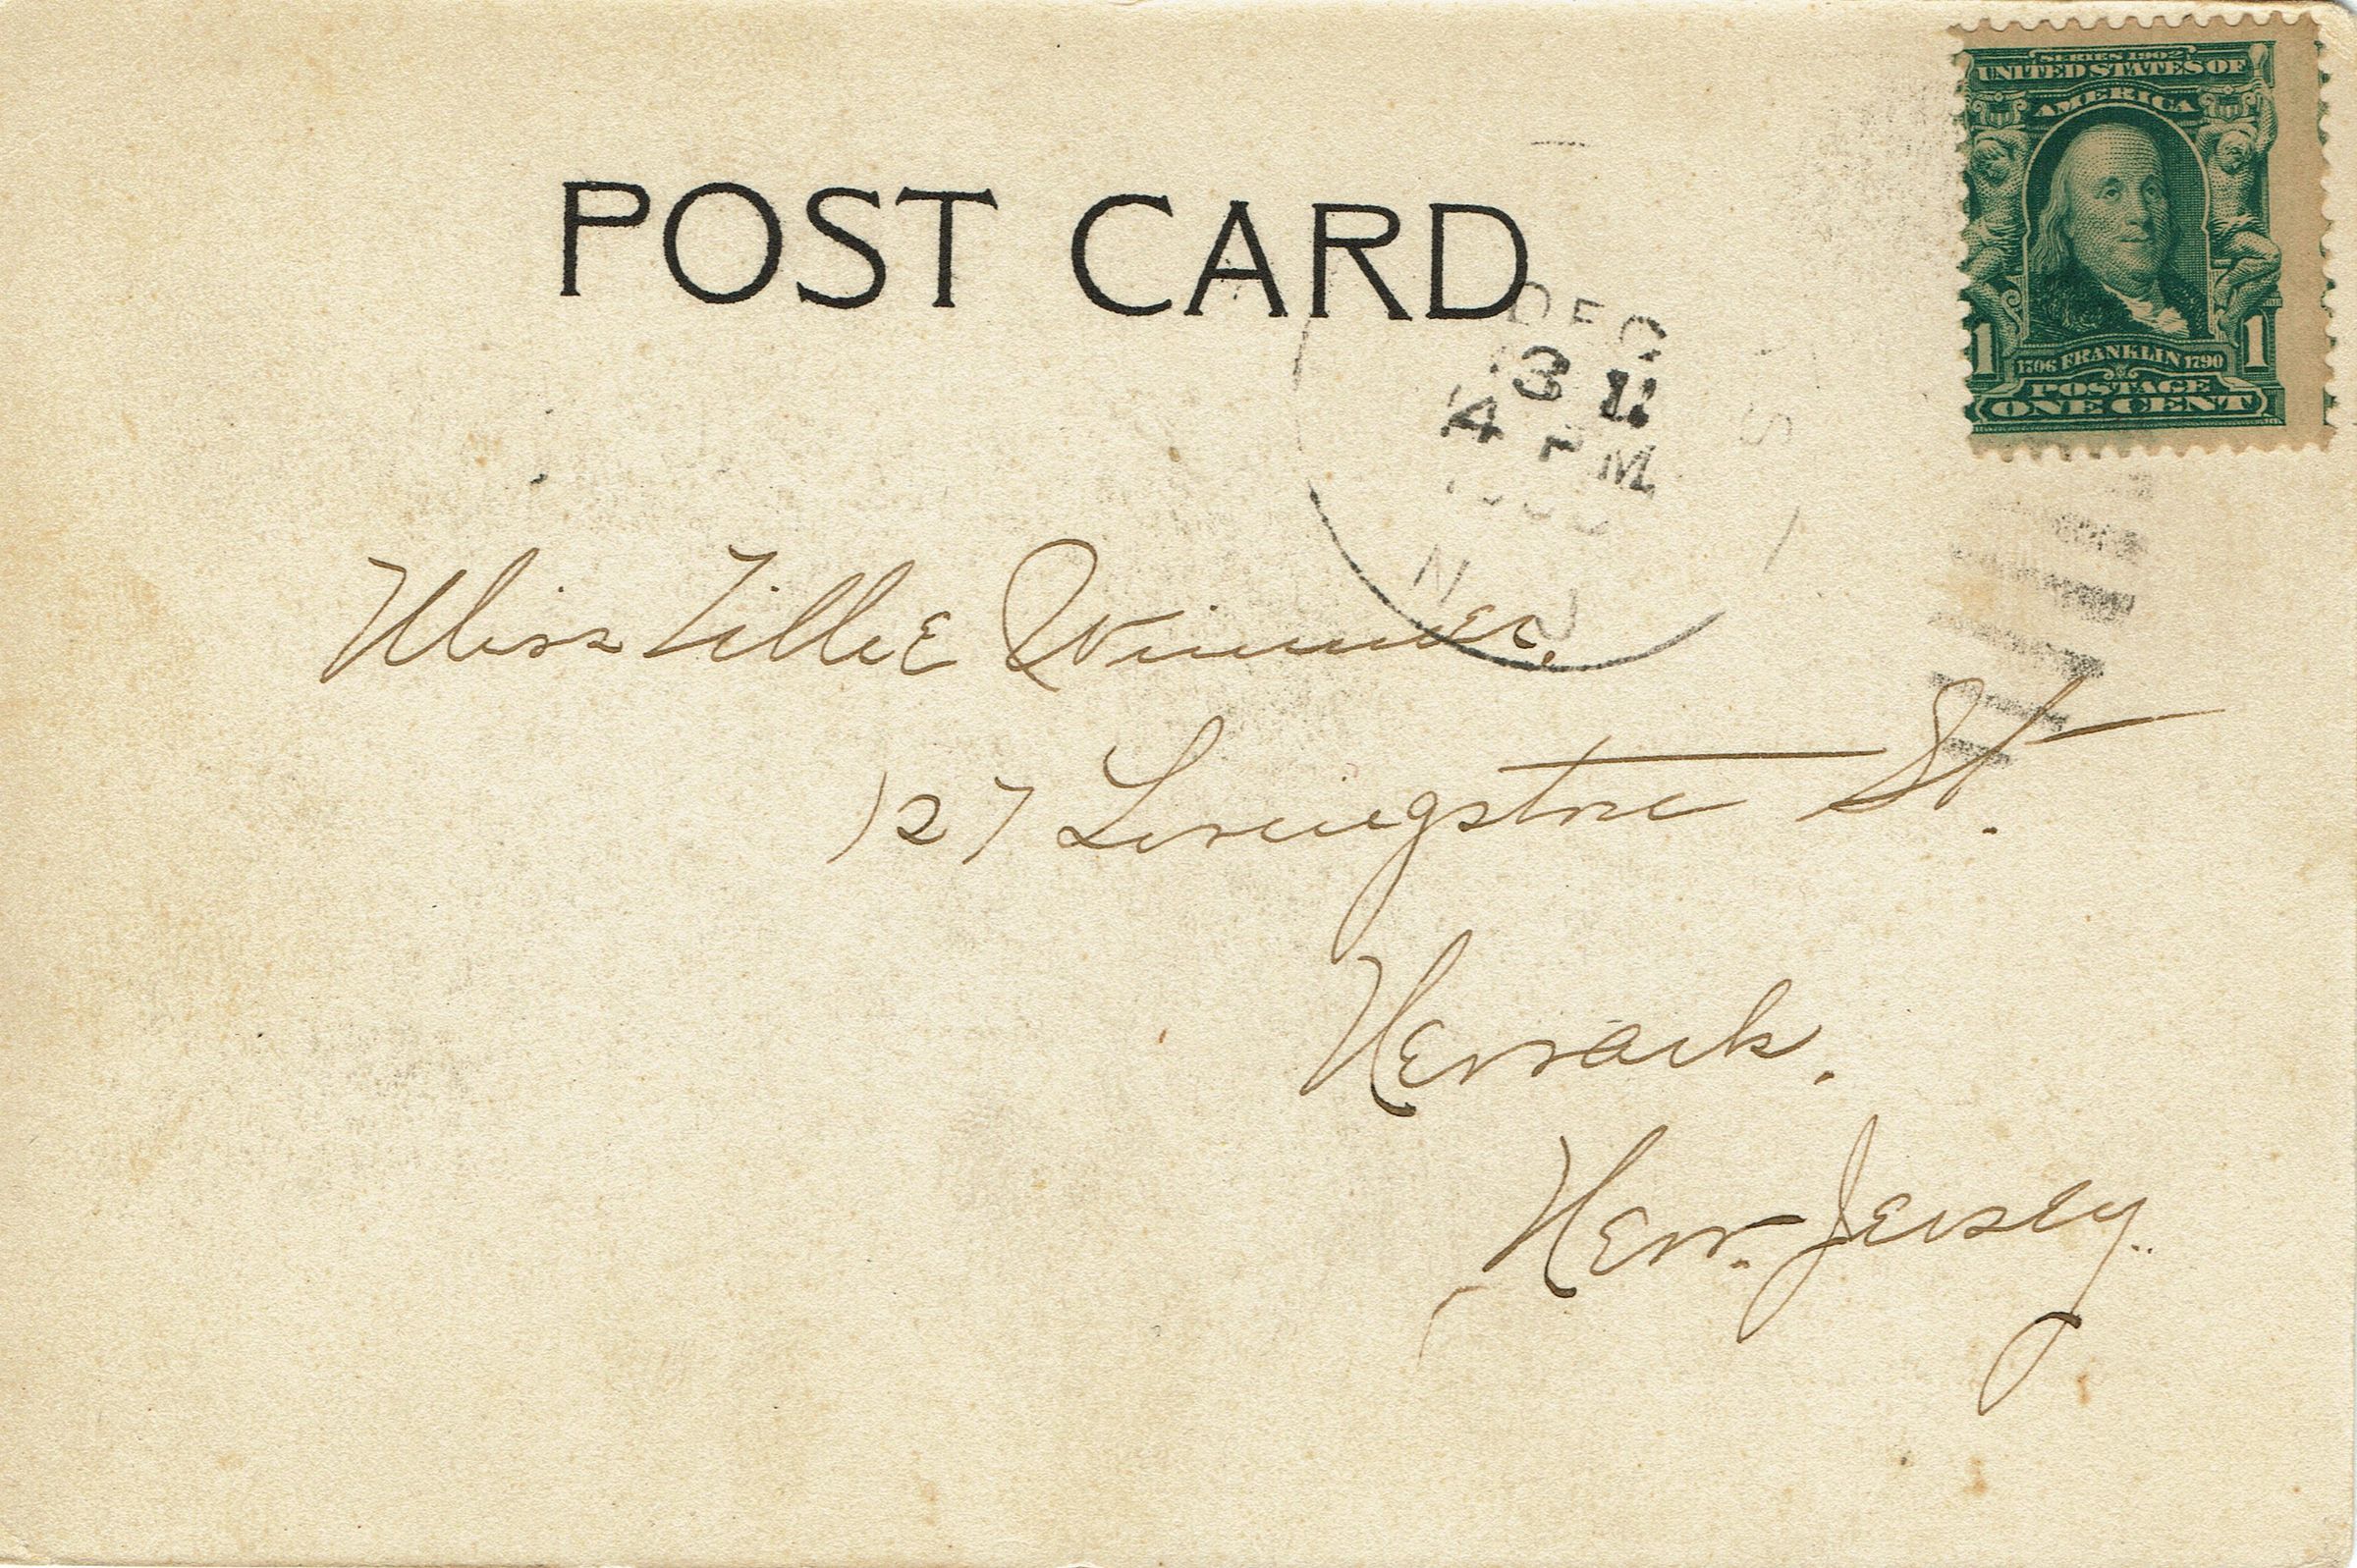 SERIES 1902
UNITED STATES OF
AMERICA
1706 FRANKLIN 1790
1 1
POSTAGE
ONE CENT
POST CARD
DEC
31
4 PM
N. J.
Miss Tillie Winner,
127 Livingstone St.
Newark.
New. Jersey.